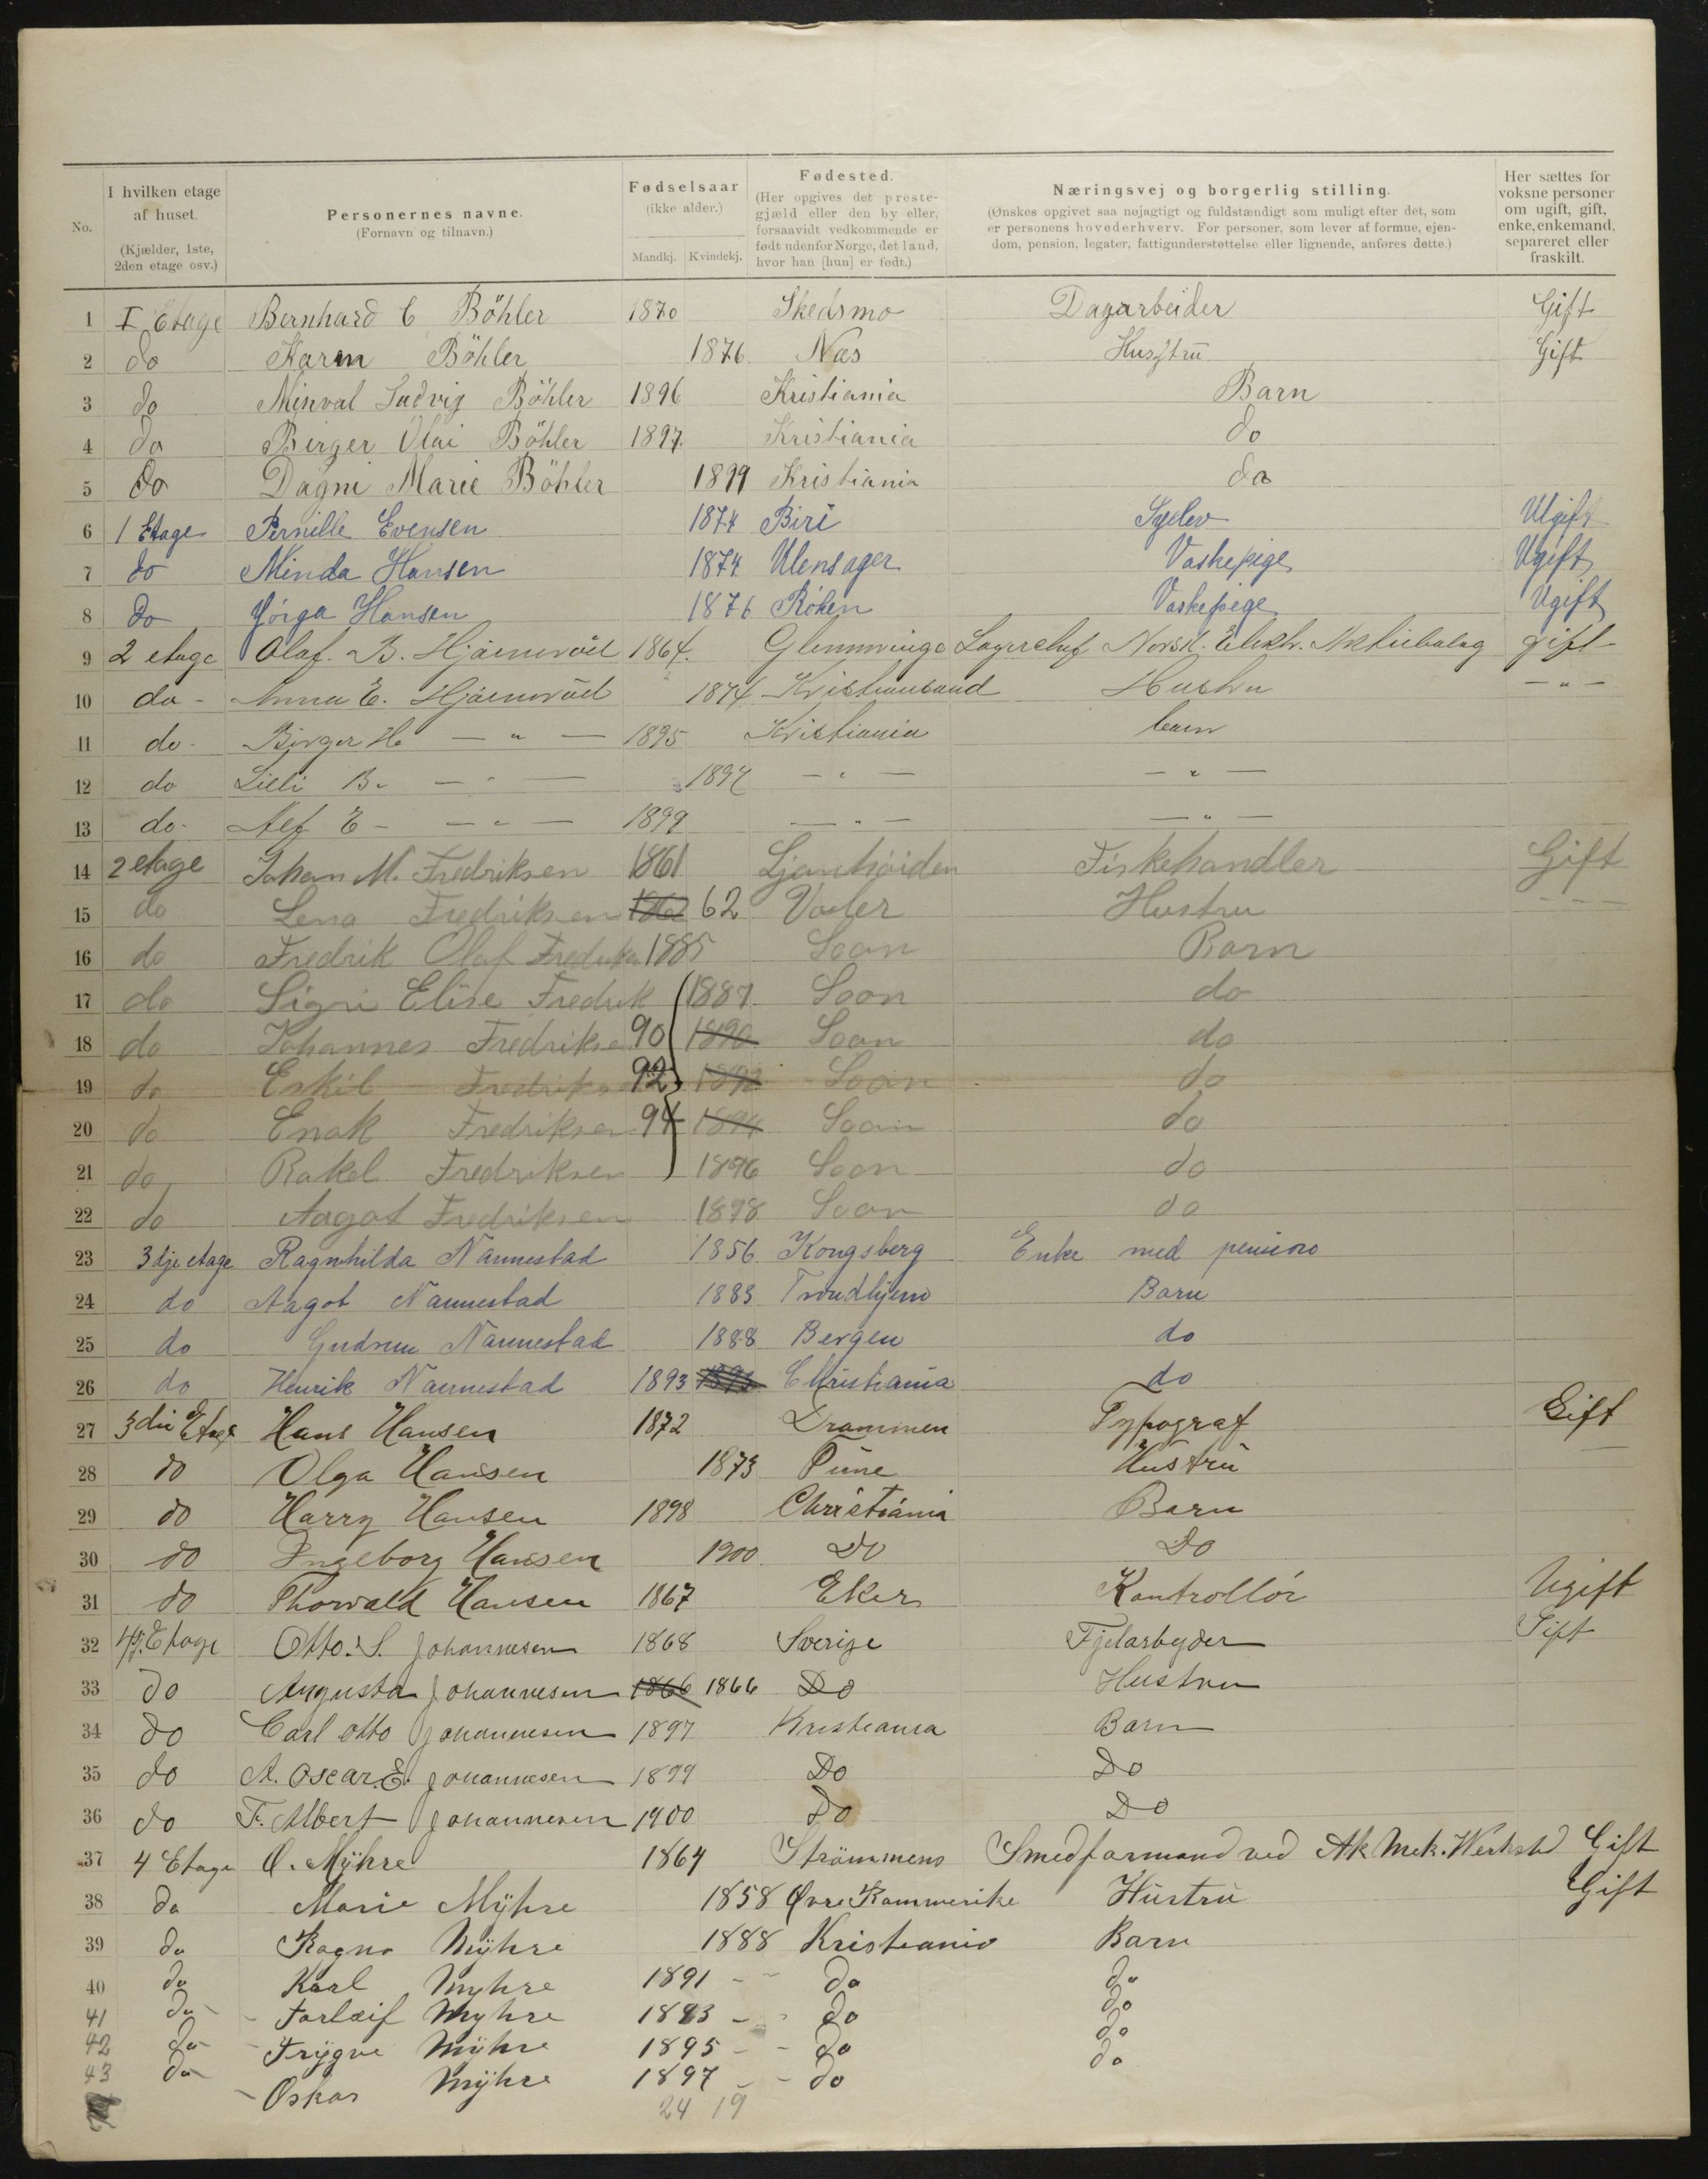 No.
I hvilken etage af huset. (Kjælder, 1ste, 2den etage osv.)
Personernes navne. (Fornavn og tilnavn.)
Fødselsaar (ikke alder.) Mandkj. Kvindekj.
Fødested. (Her opgives det prestegjæld eller den by eller, forsaavidt vedkommende er født udenfor Norge, det land, hvor han [hun] er født.)
Næringsvej og borgerlig stilling. (Ønskes opgivet saa nøjagtigt og fuldstændigt som muligt efter det, som er personens hovederhverv. For personer, som lever af formue, ejendom, pension, legater, fattigunderstøttelse eller lignende, anføres dette.)
Her sættes for voksne personer om ugift, gift, enke, enkemand, separeret eller fraskilt.
1 I Etage Bernhard C Böhler 1870 Skedsmo Dagarbeider Gift
2 do Karen Böhler 1876 Næs Husstru Gift
3 do Minval Ludvig Böhler 1896 Kristiania Barn
4 do Birger Olai Böhler 1897 Kristiania do
5 do Dagni Marie Böhler 1899 Kristiania do
6 1 Etage Pernille Evensen 1874 Biri Syelev Ugift
7 do Minda Hansen 1874 Ulensager Vaskepige Ugift
8 do Jørga Hansen 1876 Røken Vaskepige Ugift
9 2 etage Olaf. B. 1864. Glemminge Lagerchef Norsk. Elektr. Aktiebolag gift
10 do - Anna E. 1874 Kristiansand Hustru - " -
11 do - Birger H. - " - 1895 Kristiania barn
12 do Lilli B. - " - 1897 - " - - " -
13 do - Alf E - - " - 1899 - " - - " -
14 2 etage Johan M. Fredriksen 1861 Ljanhøiden Fiskehandler Gift
15 do Lena Fredriksen 62 Vaaler Hustru - - -
16 do Fredrik Olaf Fredriksen 1885 Soon Barn
17 do Signi Elise Fredrik 1887 Soon do
18 do Johannes Fredriksen 90 1890 Soon do
19 do Eskil Fredriksen 92 1892 Soon do
20 do Enok Fredriksen 94 1894 Soon do
21 do Rakel Fredriksen 1896 Soon do
22 do Aagot Fredriksen 1898 Soon do
23 3dje etage Ragnhilda Nannestad 1856 Kongsberg Enke med pension
24 do Aagot Nannestad 1883 Trondhjem Barn
25 do Gudrun Nannestad 1888 Bergen do
26 do Henrik Nannestad 1893 Christiania do
27 3die Etage Hans Hansen 1872 Drammen Typograf Gift
28 do Olga Hansen 1873 Hustru
29 do Harry Hansen 1898 Christiania Barn
30 do Ingeborg Hansen 1900 Do Do
31 do Thorvald Hansen 1867 Eker Kontrollör Ugift
32 4j. Etage Otto. S. Johannesen 1868 Sverige Fjelarbyder Gift
33 do Augusta Johannesen 1866 1866 Do Hustru
34 do Carl Otto Johannesen 1897 Kristiania Barn
35 do A. Oscar. E. Johannesen 1899 Do Do
36 do F. Albert Johannesen 1900 Do Do
37 4 Etage O. Mÿhre 1864 Strömmens Smedformand ved Ak Mek. Werksted Gift
38 do Marie Mÿhre 1858 Øvre Rommerike Hustru Gift
39 do Ragna Mÿhre 1888 Kristiania Barn
40 do Karl Myhre 1891 - - do do
41 do - Torleif Myhre 1893 - - do do
42 do - Trÿgve Mÿhre 1895 - - do do
43 do - Oskar Mÿhre 1897 - - do do
24 19